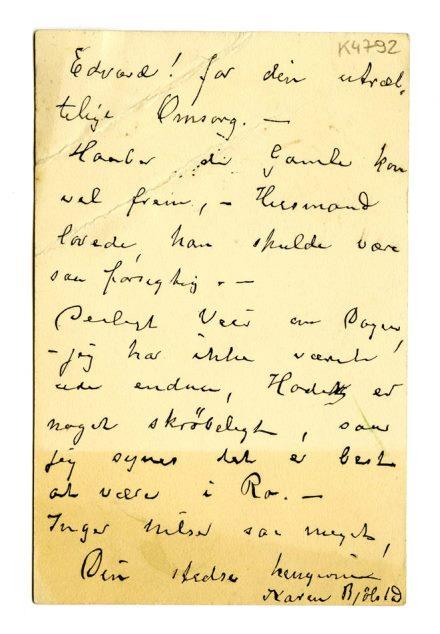 K4792
Edvard! for din utræt-
telige Omsorg. —
Haaber de Gamle kom
vel frem, — Husmand
lovede, han skulde være
saa forsigtig. —
Deiligt Veir om Dagen,
— jeg har ikke været
ude endnu, Hodet er
noget skröbeligt, saa
jeg synes det er bedst
at være i Ro. —
Inger hilser saa meget,
Din stedse hengivne
Karen Bjölstad